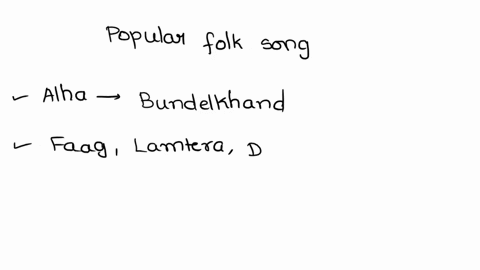 Popular folk song
✓ Alha → Bundelkhand
✓ Faag, Lamtera, D